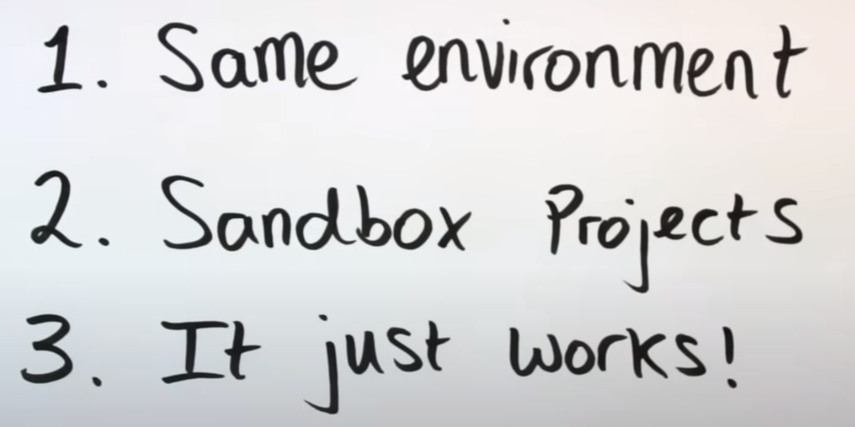 1. Same environment
2. Sandbox Projects
3. It just works!